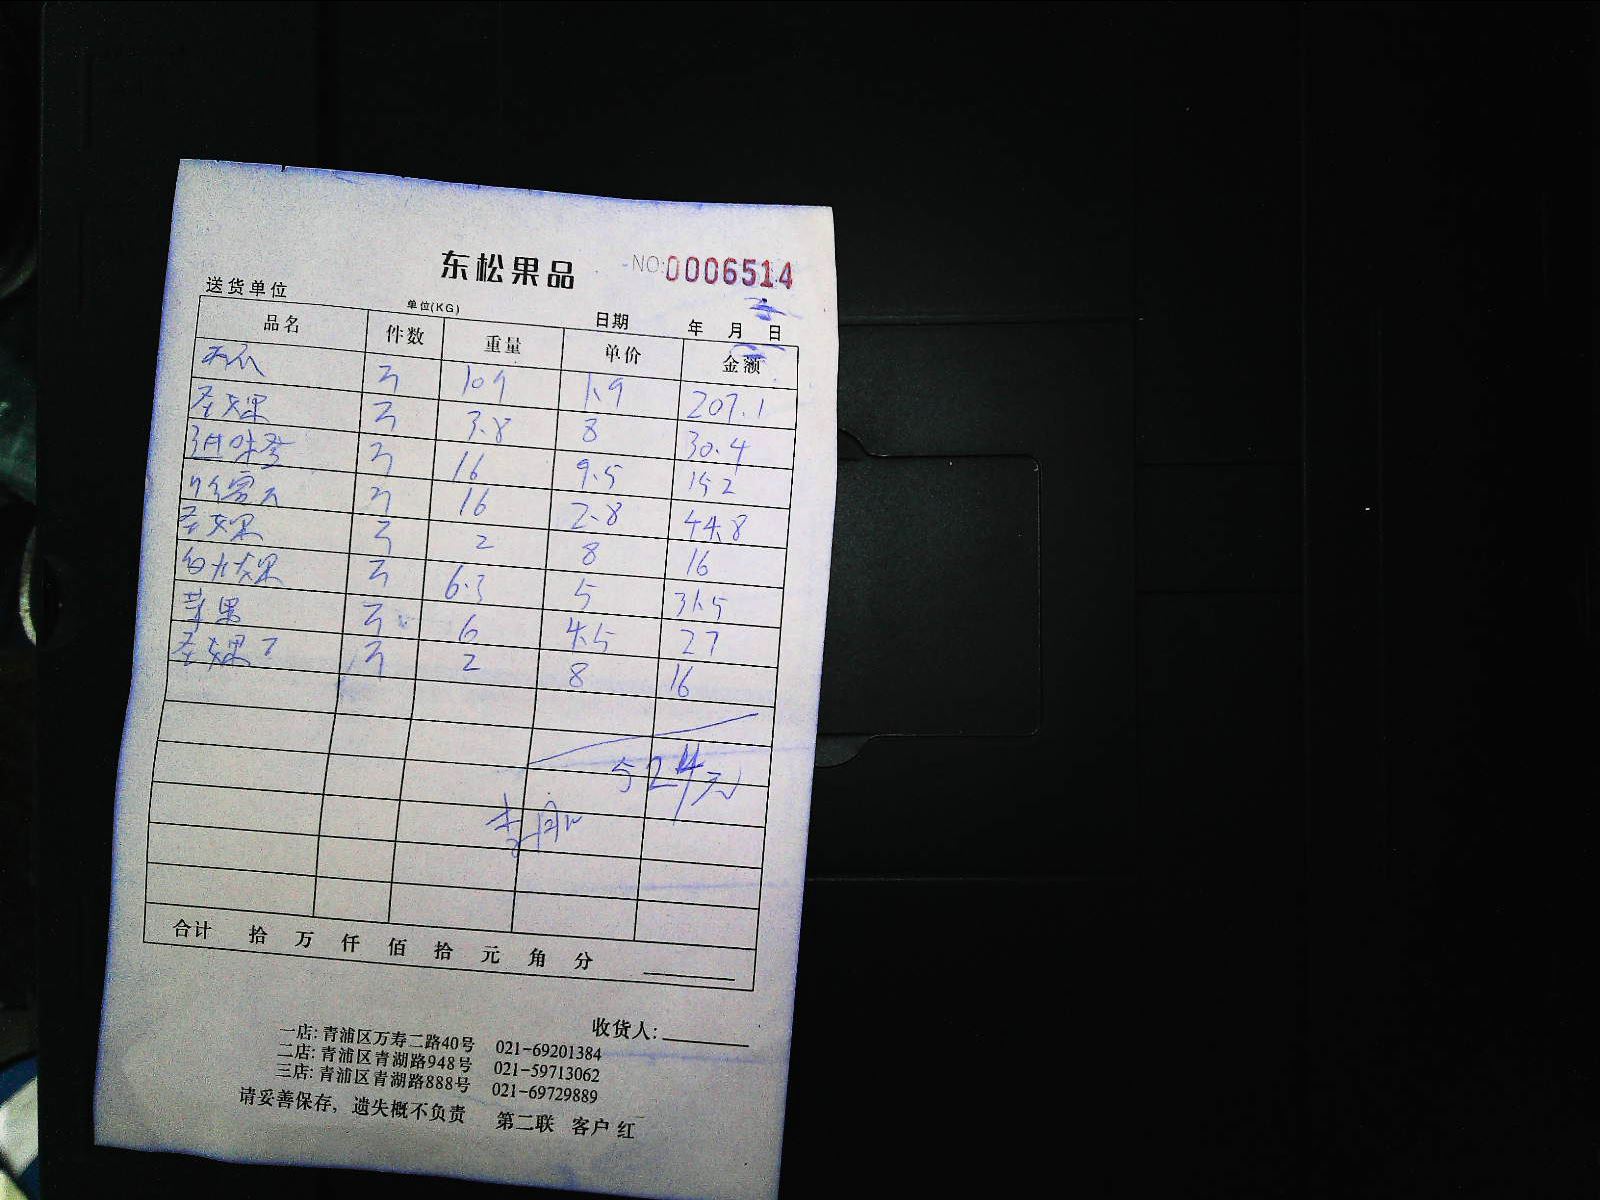 东松果品 NO:0006514
送货单位 单位(KG) 日期 年 月 日
品名 件数 重量 单价 金额
西瓜 109 1.9 207.1
圣女果 3.8 8 30.4
进口 16 9.5 152
16 2.8 44.8
圣女果 2 8 16
白火龙果 6.3 5 31.5
苹果 6 4.5 27
圣女果 2 8 16
524元
合计 拾 万 仟 佰 拾 元 角 分
收货人:
一店: 青浦区万寿二路40号 021-69201384
二店: 青浦区青湖路948号 021-59713062
三店: 青浦区青湖路888号 021-69729889
请妥善保存, 遗失概不负责 第二联 客户 红